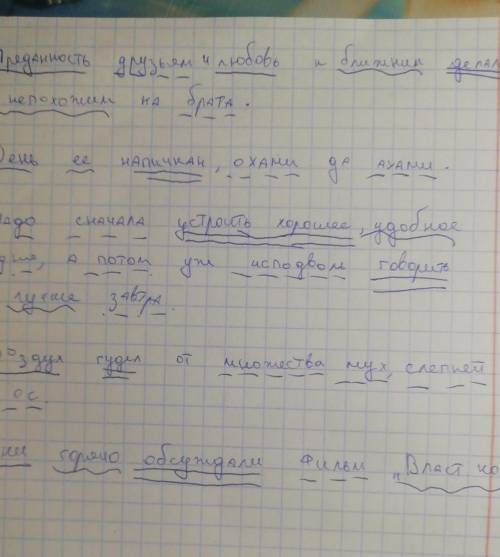 преданность друзьям и любовь к ближним делал
непохожим на брата.
день ее напичкан, охами да ахами.
надо сначала устроить хорошее, удобное
а потом уж исподвол говорить
лучше завтра.
воздух гудел от множества мух, слепней
ос.
горячо обсуждали фильм „Власт ко